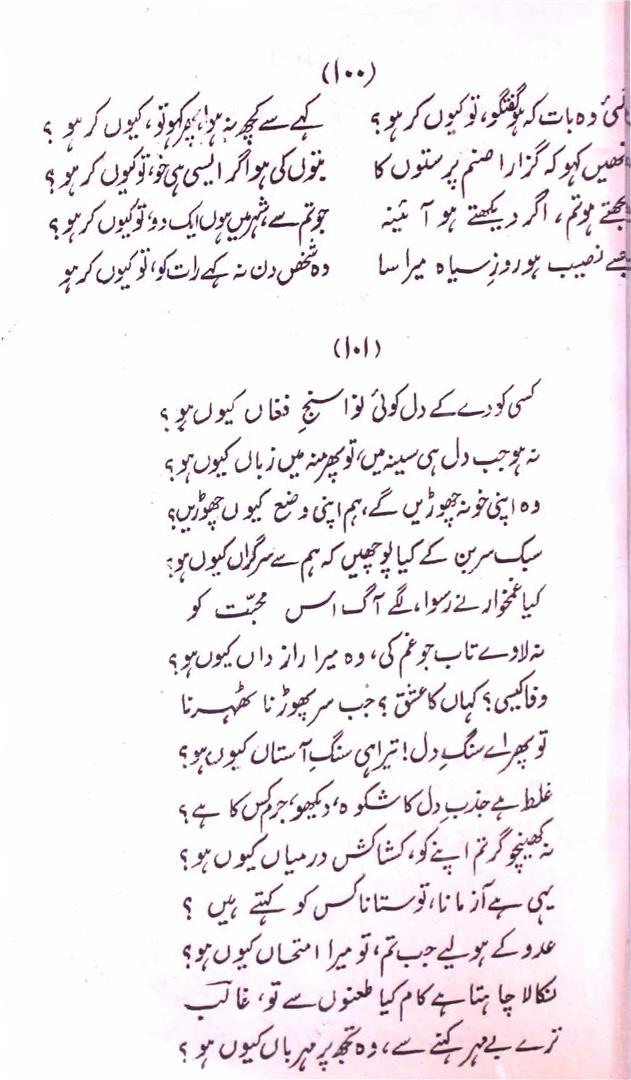 (۱۰۰)
گئی وہ بات کہ ہو گفتگو، تو کیوں کر ہو؟ کہے سے کچھ نہ ہوا، پھر کہو تو، کیوں کر ہو؟
تمھیں کہو کہ گزارا صنم پرستوں کا بتوں کی ہو اگر ایسی ہی خو، تو کیوں کر ہو؟
الجھتے ہو تم، اگر دیکھتے ہو آئینہ جو تم سے، شہر میں ہوں ایک دو، تو کیوں کر ہو؟
جسے نصیب ہو روزِ سیاہ میرا سا وہ شخص دن نہ کہے رات کو، تو کیوں کر ہو
(۱۰۱)
کسی کو دے کے دل کوئی نوا سنجِ فغاں کیوں ہو؟
نہ ہو جب دل ہی سینہ میں، تو پھر منہ میں زباں کیوں ہو؟
وہ اپنی خو نہ چھوڑیں گے، ہم اپنی وضع کیوں چھوڑیں؟
سبک سر بن کے کیا پوچھیں کہ ہم سے سرگراں کیوں ہو؟
کیا غمخوار نے رسوا، لگے آگ اس محبّت کو
نہ لاوے تاب جو غم کی، وہ میرا راز داں کیوں ہو؟
وفا کیسی؟ کہاں کا عشق؟ جب سر پھوڑنا ٹھہرنا
تو پھر اے سنگِ دل! تیرا ہی سنگِ آستاں کیوں ہو؟
غلط ہے جذبِ دل کا شکوہ، دیکھو، جرم کس کا ہے؟
نہ کھینچو گر تم اپنے کو، کشاکش درمیاں کیوں ہو؟
یہی ہے آزمانا، تو ستانا کس کو کہتے ہیں ؟
عدو کے ہو لیے جب تم، تو میرا امتحاں کیوں ہو؟
نکالا چاہتا ہے کام کیا طعنوں سے تو، غالبؔ
ترے بے مہر کہنے سے، وہ تجھ پر مہرباں کیوں ہو ؟